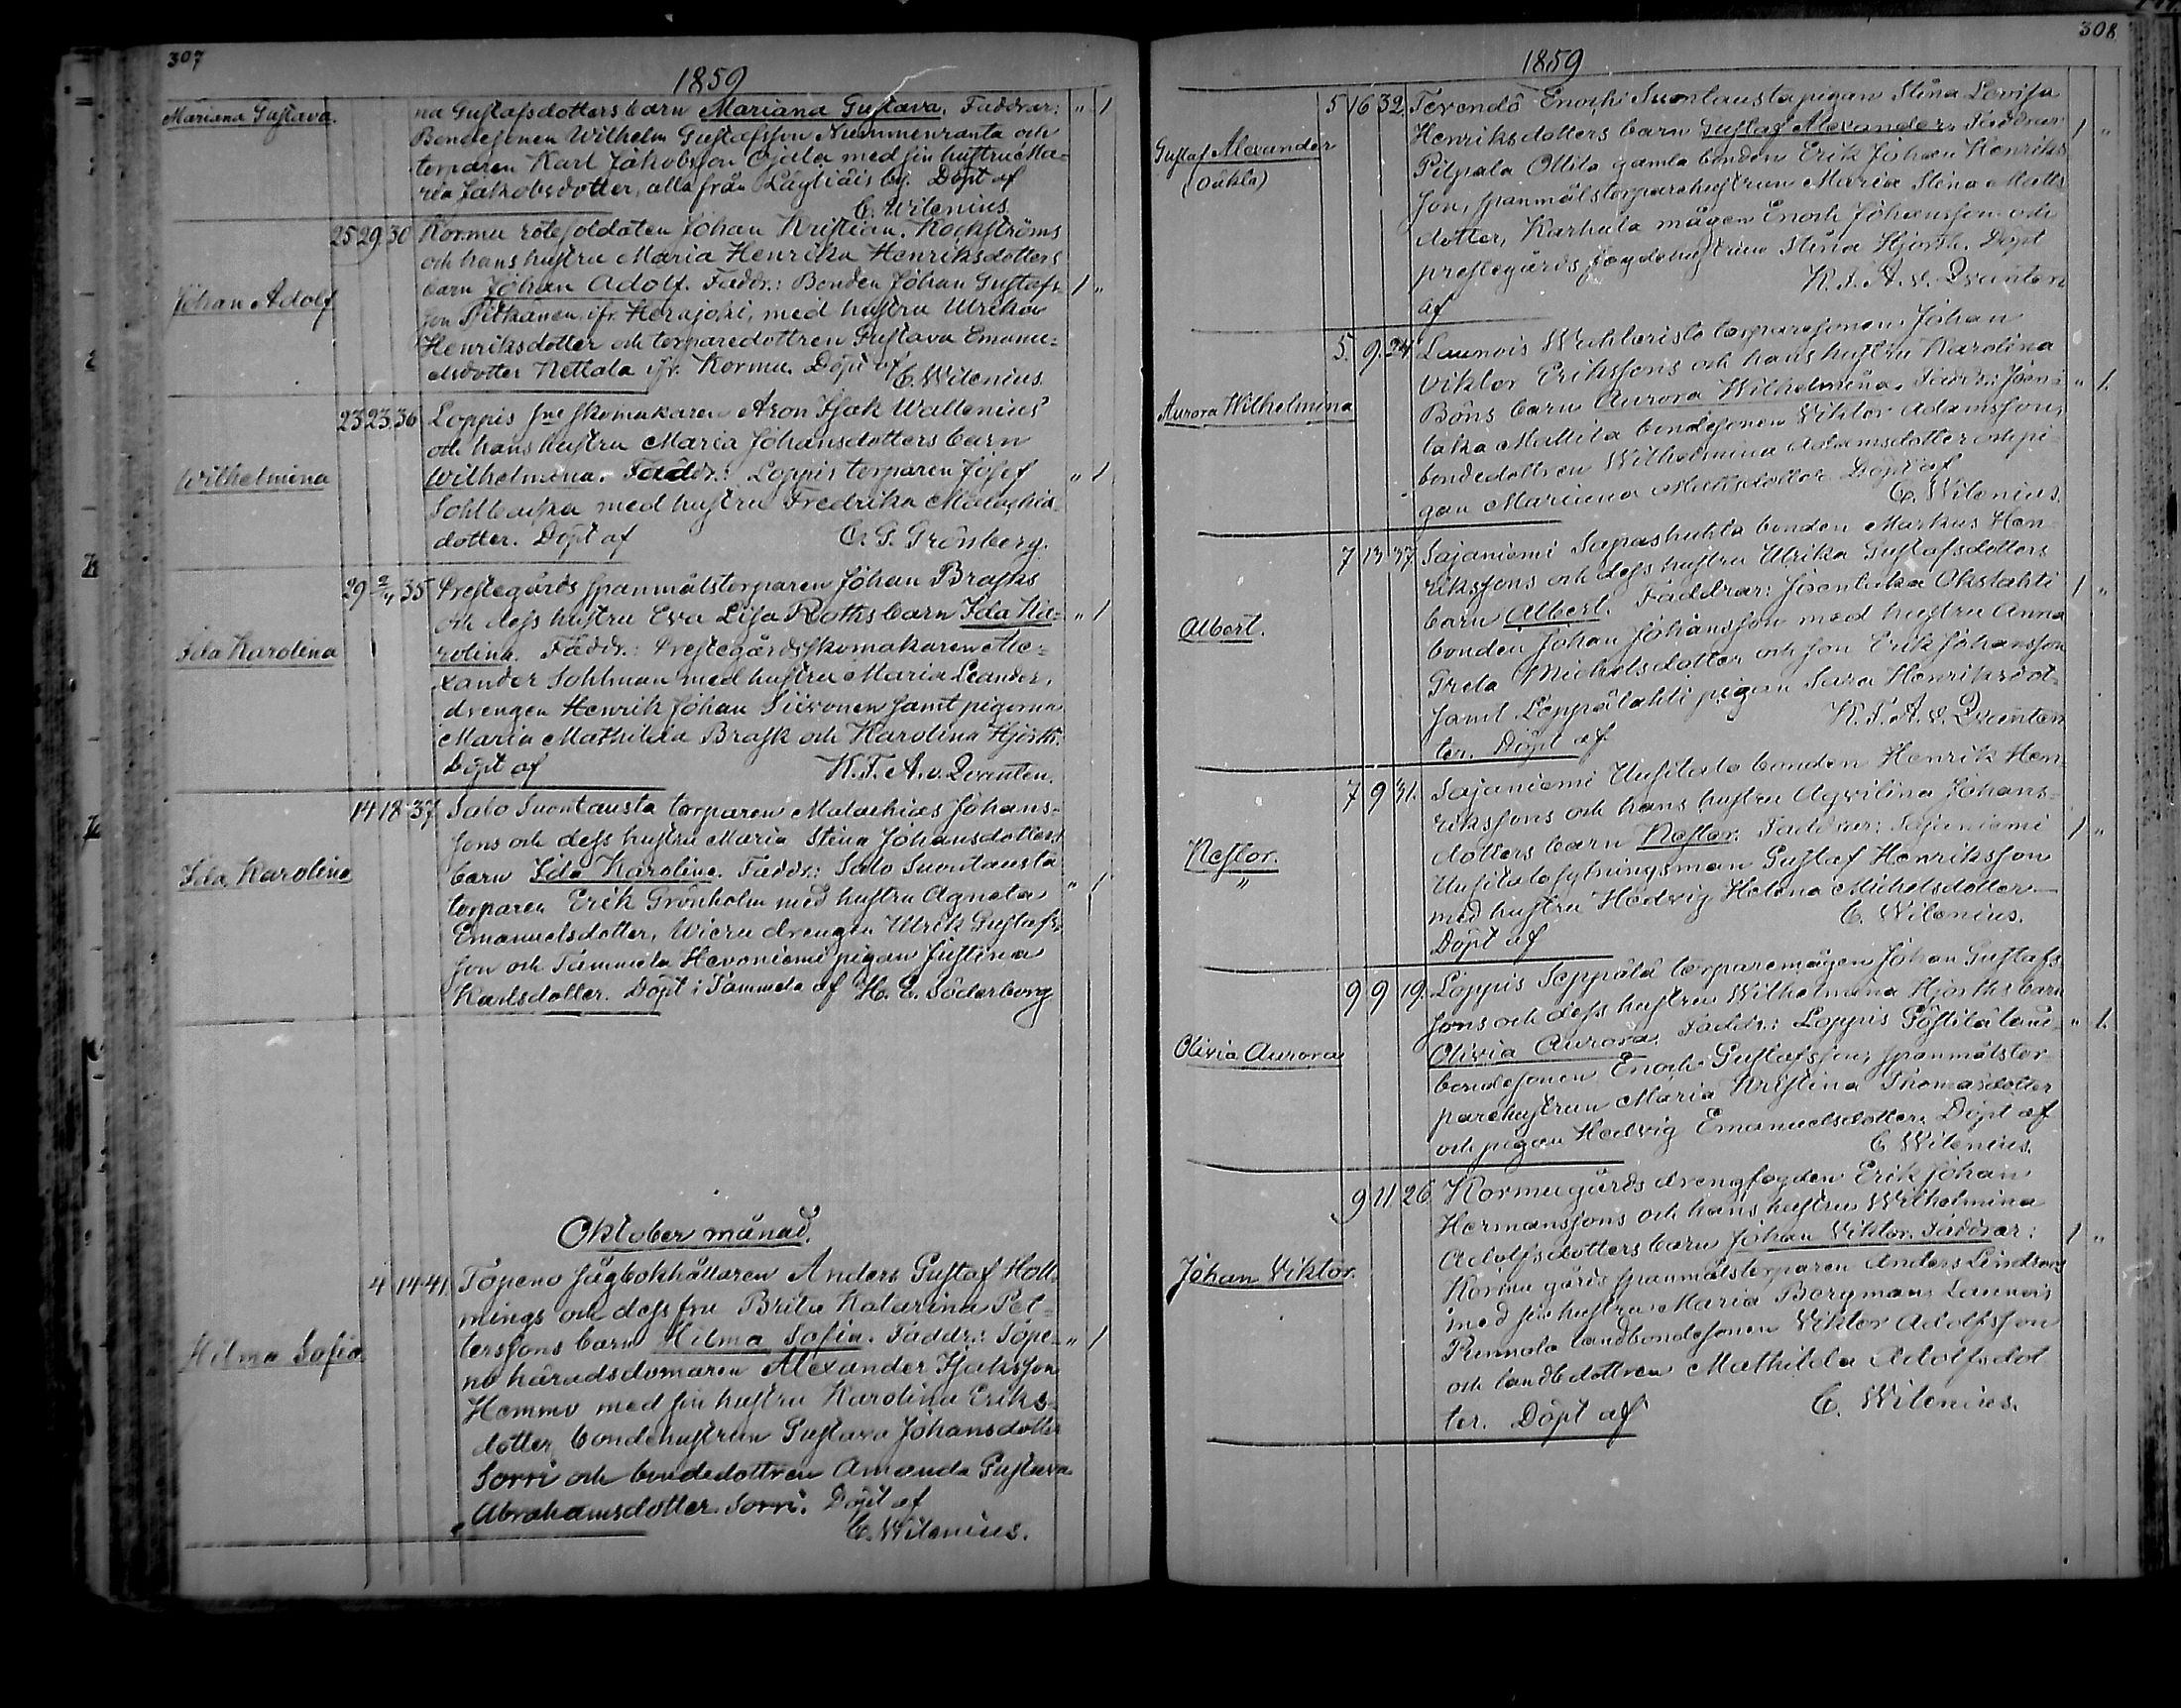 307
1859
Mariana Gustava.
na Gustafsdotters barn Mariana Gustava. Faddrar: " 1
Bondesonen Wilhelm Gustafsson Nummenranta och
torparen Karl Jakobsson Ojala med sin hustru Ma=
ria Jakobsdotter, alla från Läyliäis by. Döpt af
C. Wilenius.
Johan Adolf
25 29 30 Kormu rotesoldaten Johan Kristian Kockströms
och hans hustru Maria Henrika Henriksdotters
barn Johan Adolf. Faddr.: Bonden Johan Gustafs- 1 "
son Pitkänen ifr. Herajoki, med hustru Ulrika
Henriksdotter och torparedottren Gustava Emanu=
elsdotter Kettala ifr. Kormu. Döpt af
C. Wilenius.
Wilhelmina
23 23 36 Loppis sne skomakaren Aron Isak Wallenius'
och hans hustru Maria Johansdotters barn
Wilhelmina. Faddr.: Loppis torparen Josef " 1
Sohlbacka med hustru Fredrika Malachia-
dotter. Döpt af C. G. Grönberg.
Ida Karolina
29 2/4 35 Prestegårds spanmålstorparen Johan Brasks
och dess hustru Eva Lisa Roths barn Ida Ka= " 1
rolina. Faddr.: Prestegårdsskomakaren Ale=
xander Sohlman med hustru Maria Leander,
drengen Henrik Johan Siivonen samt pigorna
Maria Mathilda Brask och Karolina Hjorth.
Döpt af K. F. A. v. Qvanten.
Ida Karolina
14 18 37 Salo Suontausta torparen Malachias Johans=
sons och dess hustru Maria Stina Johansdotters
barn Ida Karolina. Faddr.: Salo Suontausta " 1
torparen Erik Grönholm med hustru Agneta
Emanuelsdotter, Wieru drengen Ulrik Gustafs-
son och Tammela Hevoniemi pigan Justina
Karlsdotter. Döpt i Tammela af H. E. Söderborg
Oktober månad.
Hilma Sofia
4 14 41 Topeno sågbokhållaren Anders Gustaf Holl-
mings och dess fru Brita Katarina Pet=
terssons barn Hilma Sofia. Faddr.: Tope- " 1
no häradsdomaren Alexander Isaksson
Hemmo med sin hustru Karolina Eriks=
dotter, bondehustrun Gustava Johansdotter
Sorri och bondedottren Amanda Gustava
Abrahamsdotter Sorri. Döpt af
C. Wilenius.
308
1859
Gustaf Alexander
(Oäkta)
5 16 32 Tevendö Enoshi Suontausta pigan Stina Lovisa
Henriksdotters barn Gustaf Alexander. Faddrar 1 "
Pilpala Ollila gamla bonden Erik Johan Henriks
son, spanmålstorparehustrun Maria Stina Matts
dotter, Karhula mågen Enoch Johansson och
prestegårds fogdehustrun Stina Hjorth. Döpt
af K. F. A. v. Qvanten
Aurora Wilhelmina
5. 9. 24. Launois torparesonen Johan
Viktor Erikssons och hans hustru Karolina
Böns barn Aurora Wilhelmina. Faddr.: Joen= " 1.
taka Mattila bondesonen Viktor Adamsson,
bondedottren Wilhelmina Adamsdotter och pi=
gan Mariana Mattsdotter. Döpt af
C. Wilenius.
Albert.
7 13 37. Sajaniemi Sapashuhta bonden Markus Hen
rikssons och dess hustru Ulrika Gustafsdotters
barn Albert. Faddrar: Joentaka Okslahti 1 "
bonden Johan Johansson med hustru Anna
Greta Michelsdotter och son Erik Johansson
samt Loppilahti pigan Sara Henriksdot-
ter. Döpt af K. F. A. v. Qvanten
Nestor.
"
7 9 31. Sajaniemi Uusitalo bonden Henrik Hen
rikssons och hans hustru Aqvilina Johans=
dotters barn Nestor. Faddrar: Sajaniemi 1 "
Uusitalo sytningsman Gustaf Henriksson
med hustru Hedvig Helena Michelsdotter—
Döpt af C. Wilenius.
Olivia Aurora
9 9 19. Loppis Seppälä torparemågen Johan Gustafs
sons och dess hustru Wilhelmina Hjorths barn
Olivia Aurora. Faddr.: Loppis Göstilä land- " 1.
bondesonen Enoch Gustafsson, spanmålstor
parehustrun Maria Kristina Thomasdotter
och pigan Hedvig Emanuelsdotter. Döpt af
C Wilenius.
Johan Viktor.
9 11 26 Kormugårds drengfogden Erik Johan
Hermanssons och hans hustru Wilhelmina
Adolfsdotters barn Johan Viktor. Faddrar: 1 "
Kormu gårds spanmålstorparen Anders Lindroos
med sin hustru Maria Borgman, Launois
Runnola landbondesonen Viktor Adolfsson
och landbdottren Mathilda Adolfsdot
ter. Döpt af C. Wilenius.